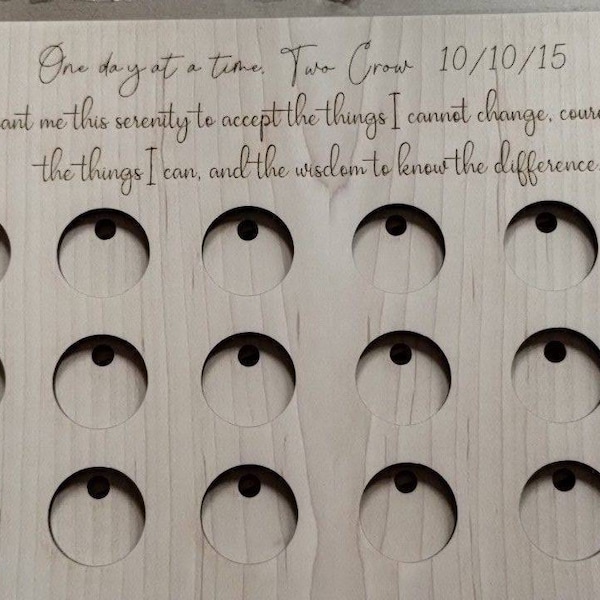 One day at a time. Two Crow 10/10/15
ant me this serenity to accept the things I cannot change, cour
the things I can, and the wisdom to know the difference.